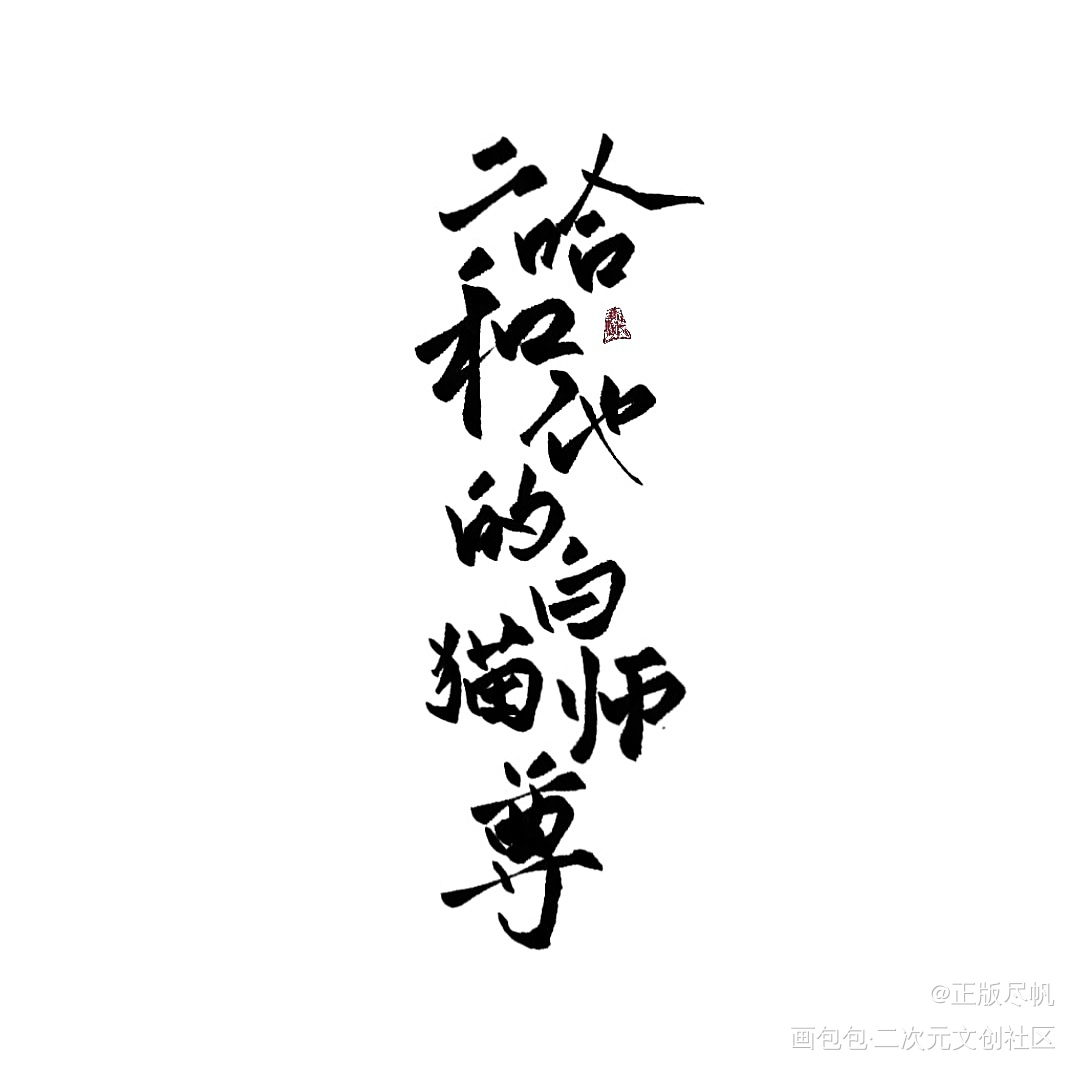 二哈和他的白猫师尊
@正版尽帆
画包包·二次元文创社区